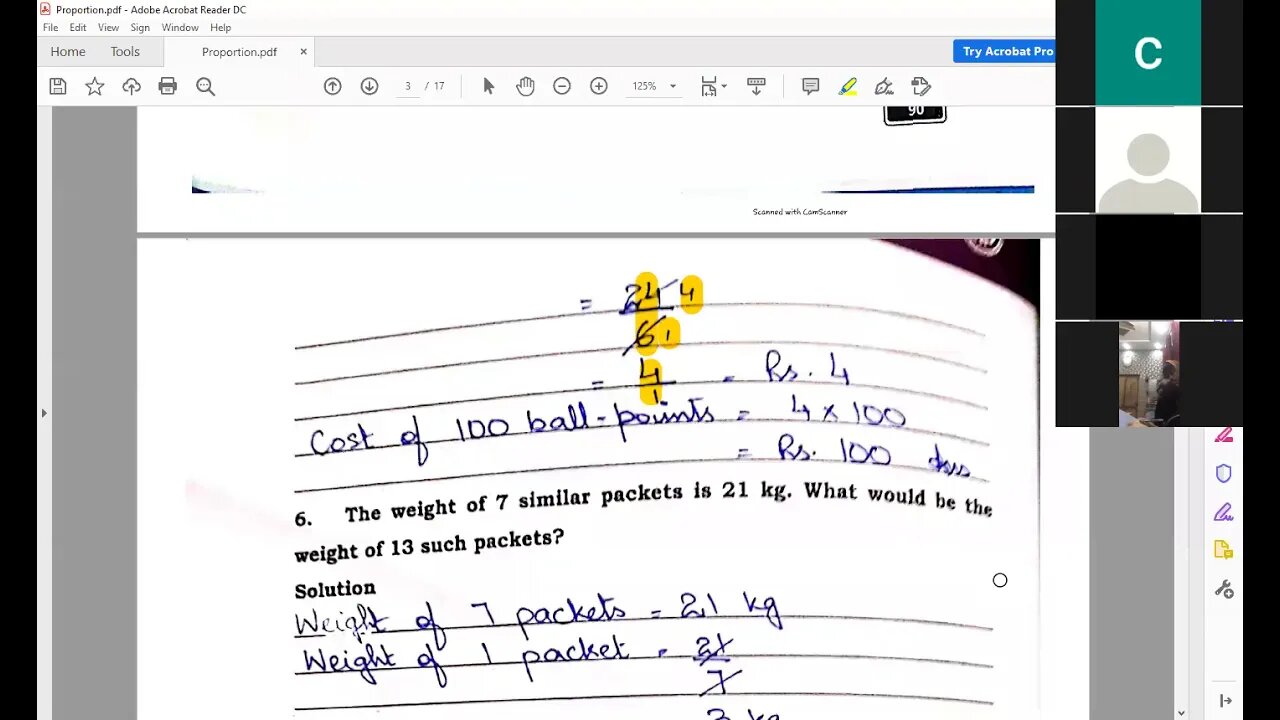 Proportion.pdf - Adobe Acrobat Reader DC
File Edit View Sign Window Help
Home Tools Proportion.pdf × Try Acrobat Pro
3 / 17 125%
C
90
Scanned with CamScanner
= 24 4
6 1
= 4 = Rs. 4
1
Cost of 100 ball-points = 4 x 100
= Rs. 100
6. The weight of 7 similar packets is 21 kg. What would be the
weight of 13 such packets?
Solution
Weight of 7 packets = 21 kg
Weight of 1 packet = 21
7
3 kg